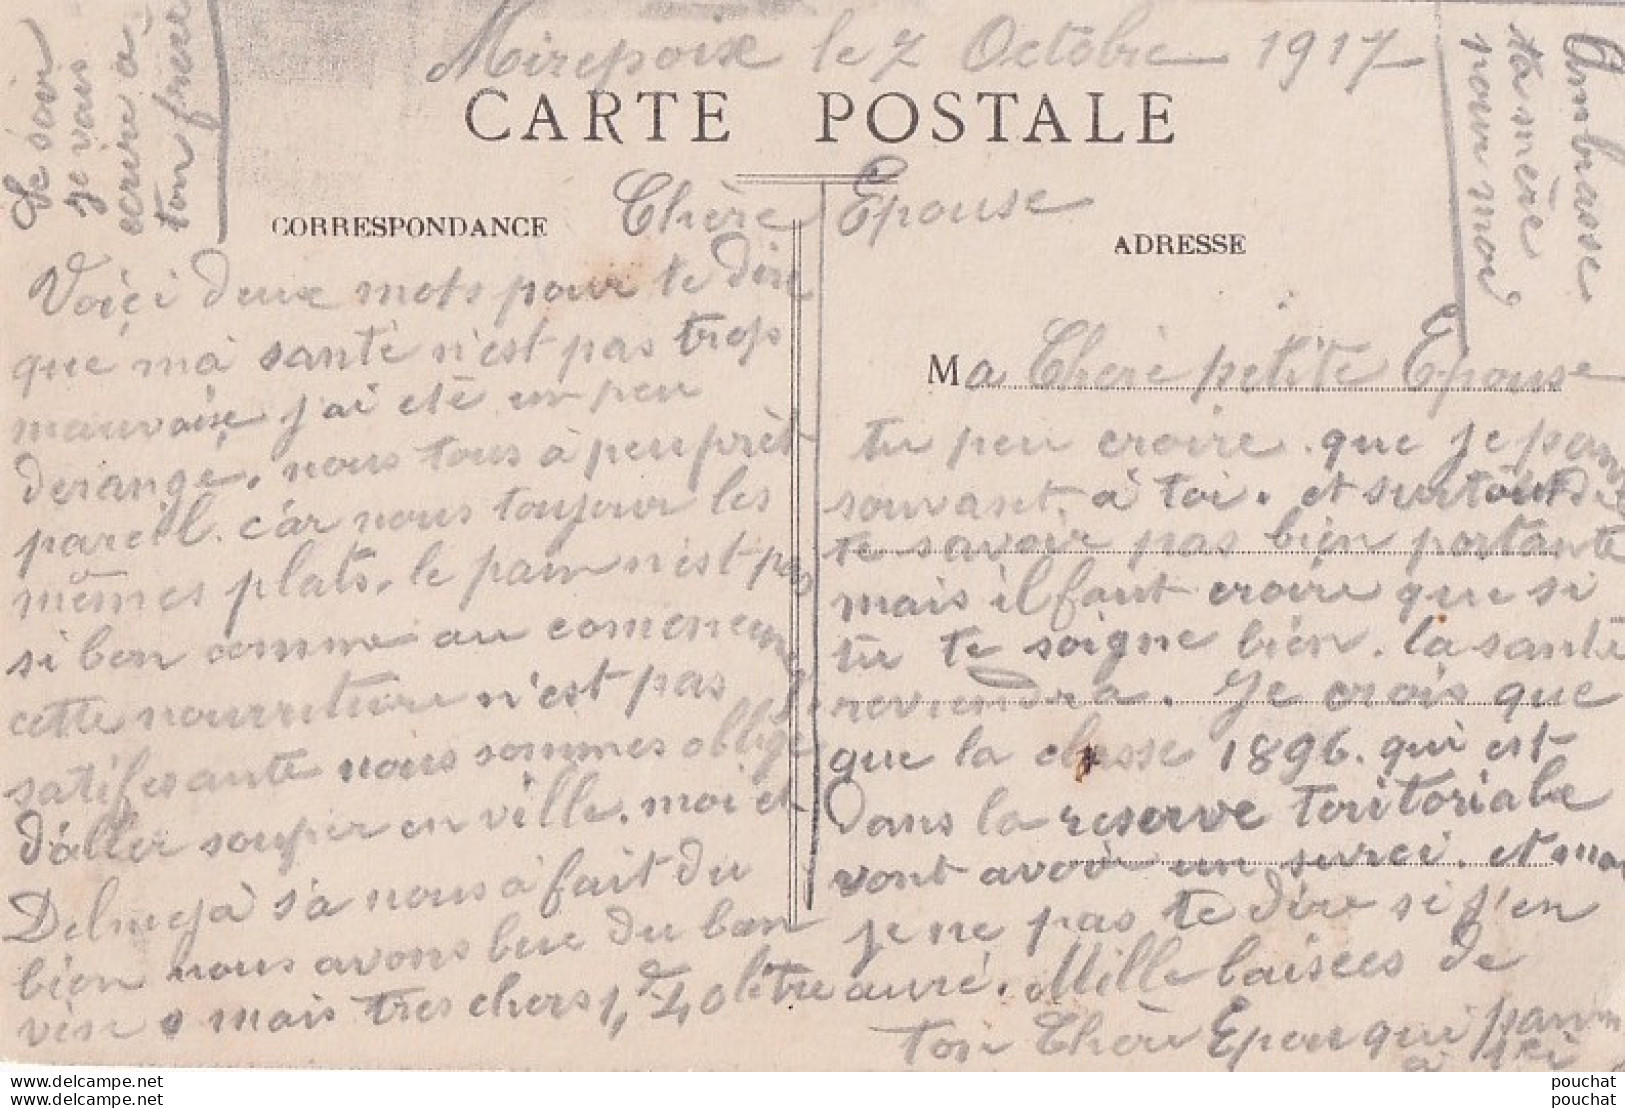 Mirepoix le 7 Octobre 1917
CARTE POSTALE
Ce soir
je vais
ecrire à
ton frere
Ambrasse
ta mère
pour moi
CORRESPONDANCE
ADRESSE
Chère Epouse
Voiçi deux mots pour te dire
que ma santé n'est pas trop
mauvaise, j'ai eté un peu
derangé. nous tous à peuprèt
pareil. càr nous toujour les
mêmes plats. le pain n'est pas
si bon comme au comencem
cette nourriture n'est pas
satifesante nous sommes obligé
d'àller souper en ville. moi et
Delmeja s'à nous à fait du
bien nous avons bue du bon
vin mais tres chers 1,40 litre
Ma Cherè petite Epouse
tu peu croire que je pan
souvant à toi. et surtout de
te savoir pas bien portante
mais il faut croire que si
tu te soigne bien. la santé
reviendra. Je crois que
que la classe 1896. qui est
dans la reserve toritoriale
vont avoir un surci. et moi
je ne pas te dire si j'en
auré. Mille baisées de
ton Cherè Epou qui pan
à
pouchat
pouchat
www.delcampe.net
www.delcampe.net